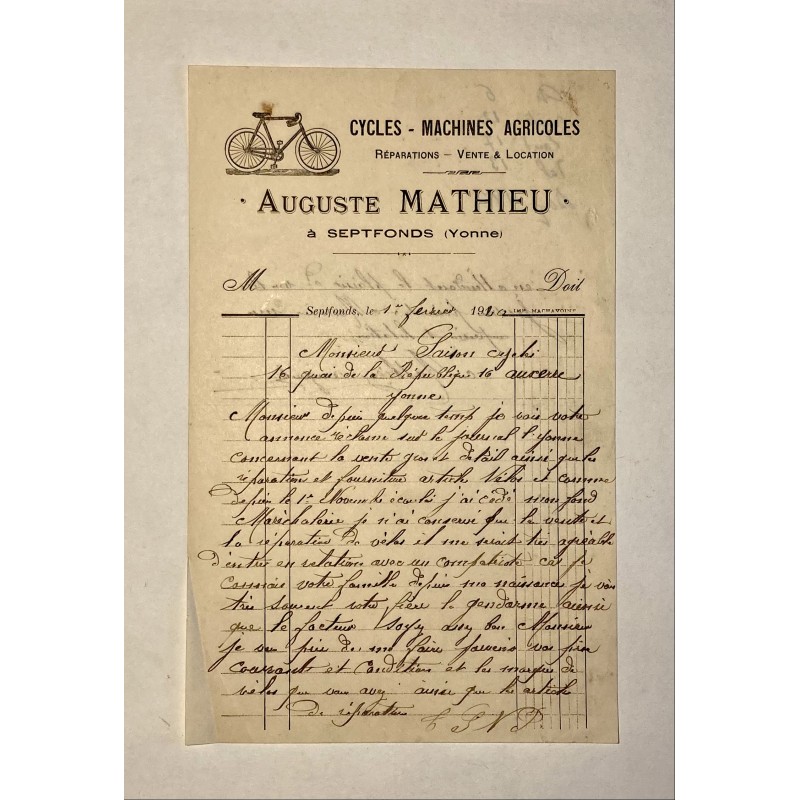 CYCLES - MACHINES AGRICOLES
RÉPARATIONS – VENTE & LOCATION
· AUGUSTE MATHIEU ·
à SEPTFONDS (Yonne)
M Doit
Septfonds, le 1er fevrier 192
Monsieur Saison cycles
16 quai de la République 16 auxerre
yonne
Monsieur depuis quelque temp je vois votre
annonce réclame sur le journal l'yonne
concernant la vente gros et détail ainsi que les
réparation et fourniture article Vélos et comme
depuis le 1er Novembre écoulé j'ai cédé mon fond
Maréchalerie je n'ai conservé que la vente et
la réparation de vélos il me serait très agréable
d'entrer en relations avec un compatriote car je
connais votre famille depuis ma naissance je vois
très souvent votre frère le gendarme ainsi
que le facteur soyez assez bon Monsieur
je vous prie de me faire parvenir vos prix
courant et condition et les marques de
vélos que vous avez ainsi que les article
de réparation
T S V P